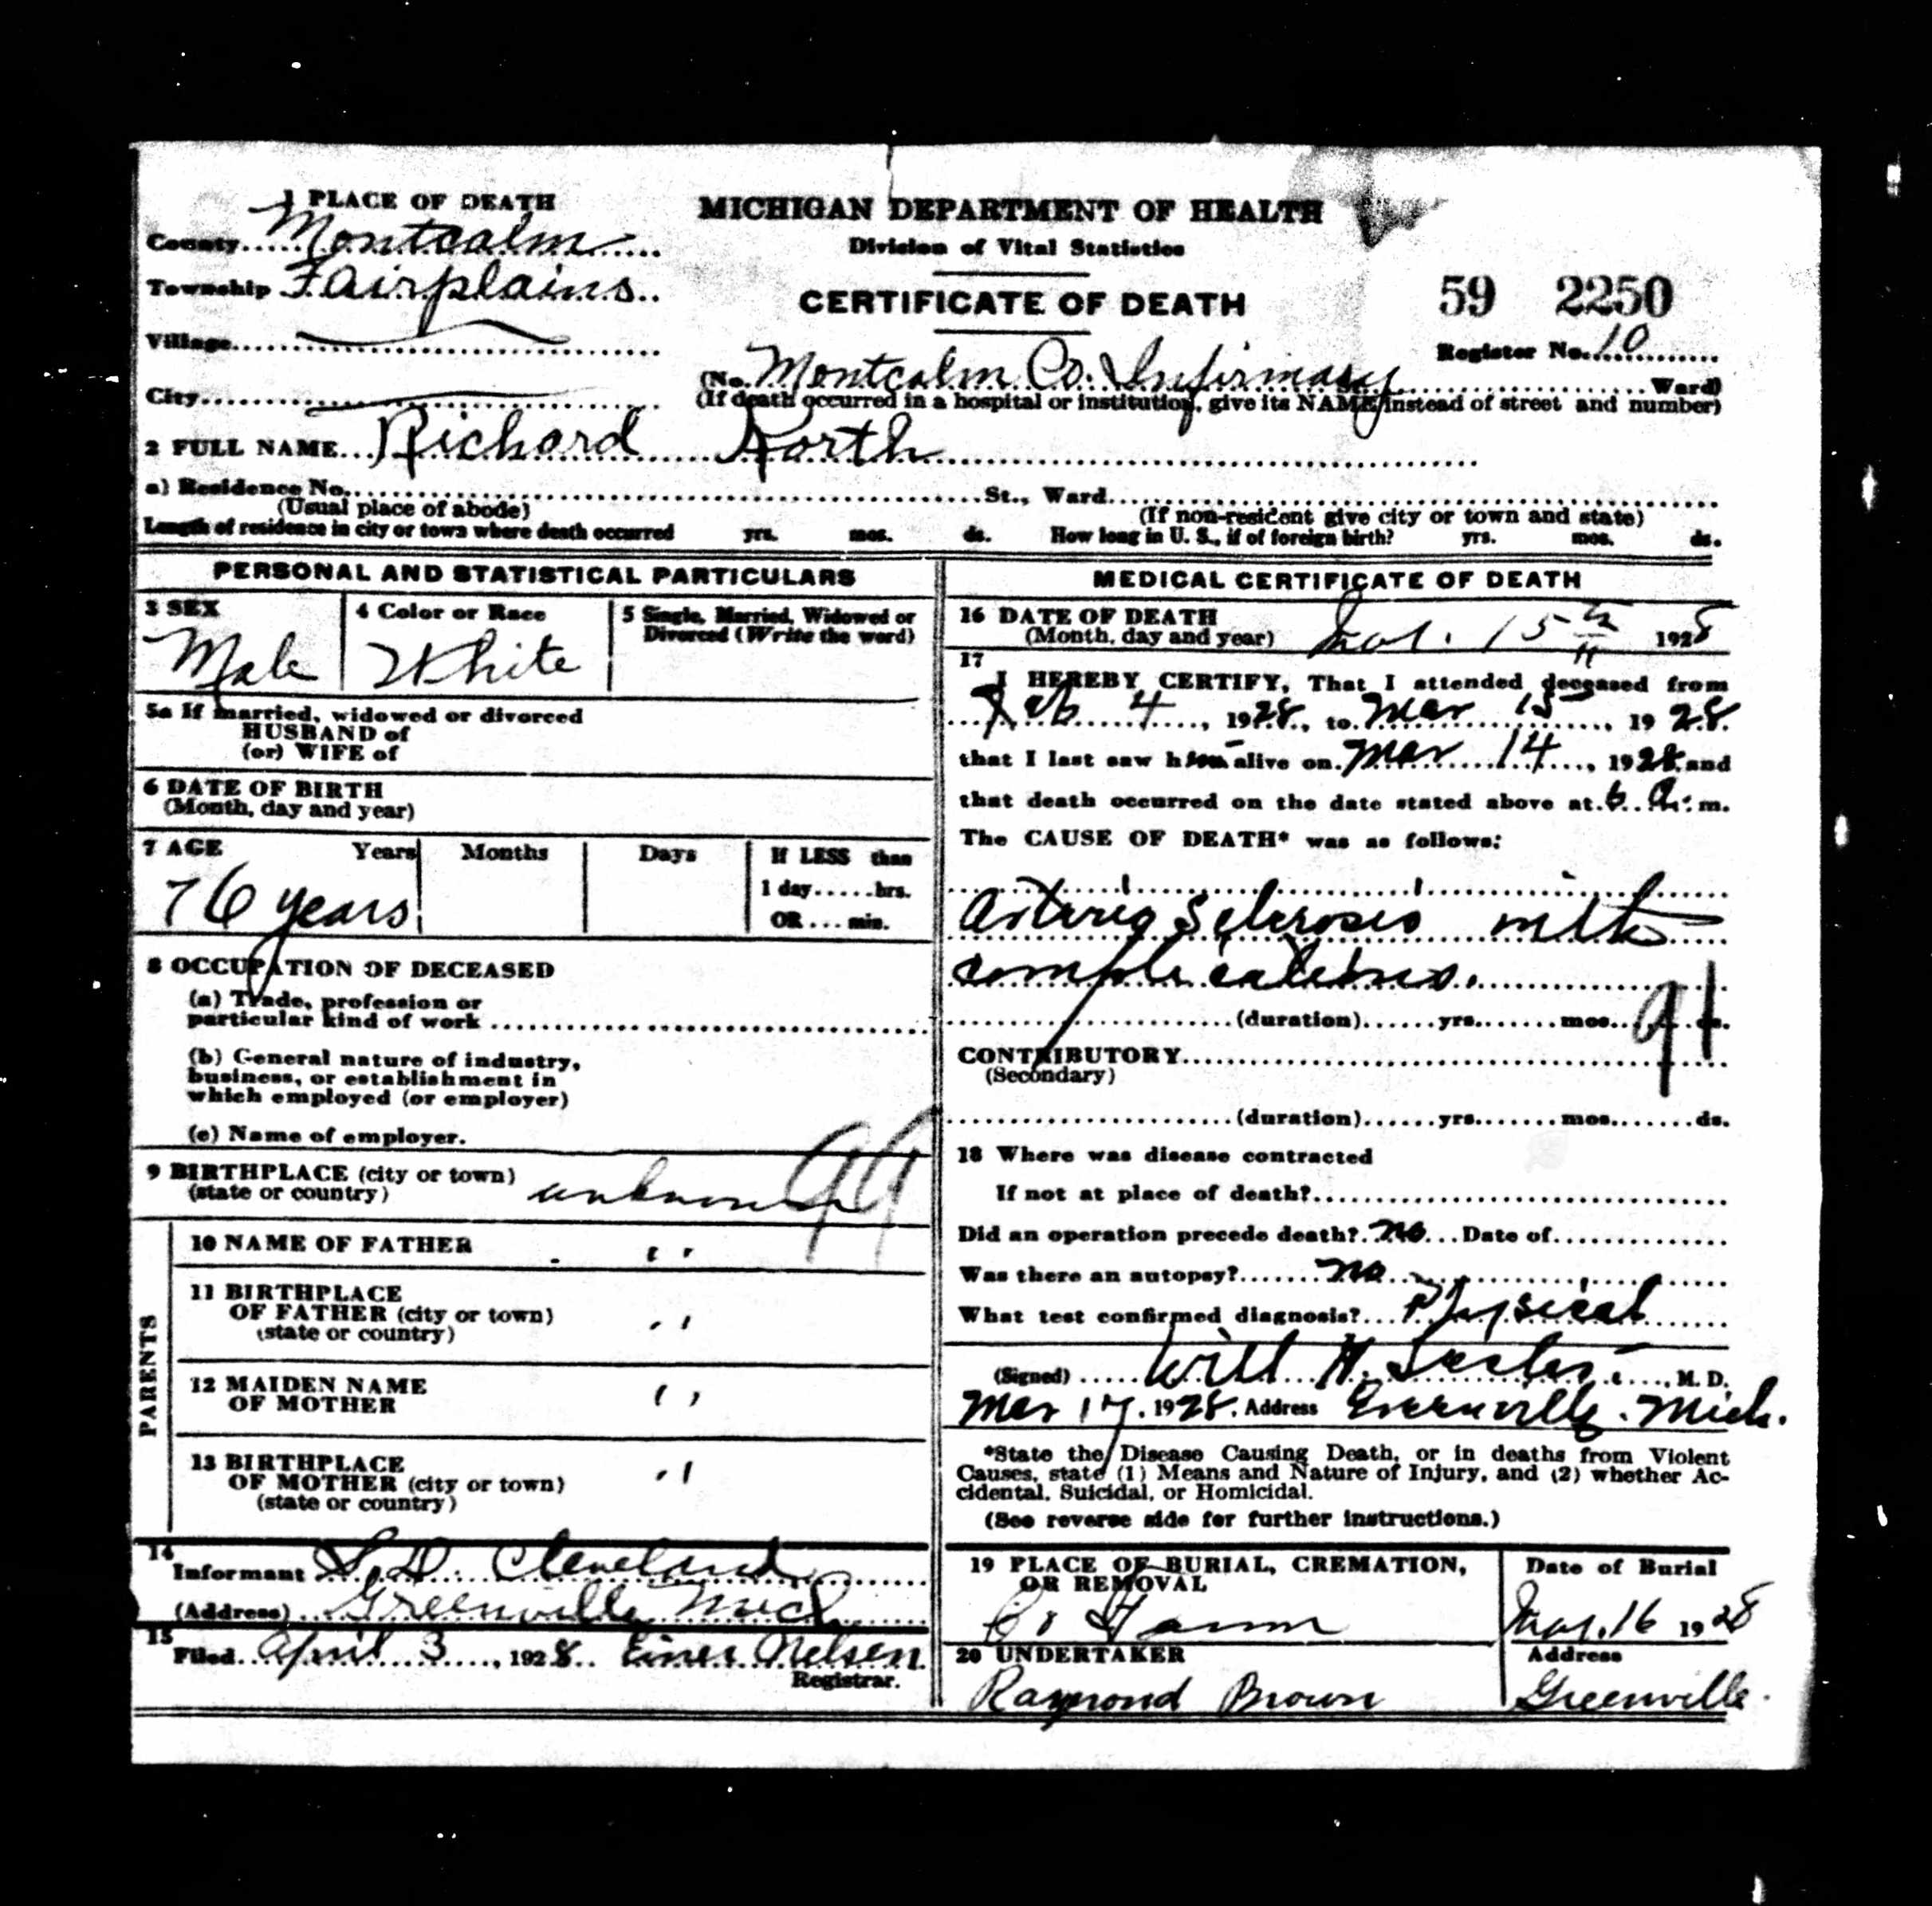 1 PLACE OF DEATH
County Montcalm
Township Fairplains
Village
City
MICHIGAN DEPARTMENT OF HEALTH
Division of Vital Statistics
CERTIFICATE OF DEATH
59 2250
Register No. 10
(No. Montcalm Co. Infirmary St. Ward)
(If death occurred in a hospital or institution, give its NAME instead of street and number)
2 FULL NAME Richard North
a) Residence No. St., Ward
(Usual place of abode) (If non-resident give city or town and state)
Length of residence in city or town where death occurred yrs. mos. ds. How long in U. S., if of foreign birth? yrs. mos. ds.
PERSONAL AND STATISTICAL PARTICULARS
3 SEX 4 Color or Race 5 Single, Married, Widowed or
Divorced (Write the word)
Male White
5a If married, widowed or divorced
HUSBAND of
(or) WIFE of
6 DATE OF BIRTH
(Month, day and year)
7 AGE Years Months Days If LESS than
1 day......hrs.
OR....min.
76 years
8 OCCUPATION OF DECEASED
(a) Trade, profession or
particular kind of work
(b) General nature of industry,
business, or establishment in
which employed (or employer)
(c) Name of employer.
99
9 BIRTHPLACE (city or town)
(state or country) unknown
PARENTS
10 NAME OF FATHER " 
11 BIRTHPLACE
OF FATHER (city or town) "
(state or country)
12 MAIDEN NAME "
OF MOTHER
13 BIRTHPLACE "
OF MOTHER (city or town)
(state or country)
14
Informant S. D. Cleveland
(Address) Greenville Mich
15
Filed April 3, 1928 Einer Nelsen
Registrar.
MEDICAL CERTIFICATE OF DEATH
16 DATE OF DEATH
(Month, day and year) Mar. 15th 1928
17
I HEREBY CERTIFY, That I attended deceased from
Feb 4, 1928, to Mar 15, 1928.
that I last saw him alive on Mar 14, 1928 and
that death occurred on the date stated above at 6 A. m.
The CAUSE OF DEATH* was as follows:
Arterio Sclerosis with
complications.
91
(duration) yrs. mos. ds.
CONTRIBUTORY
(Secondary)
(duration) yrs. mos. ds.
18 Where was disease contracted
If not at place of death?
Did an operation precede death? no Date of
Was there an autopsy? no
What test confirmed diagnosis? Physical
(Signed) Will H. M. D.
Mar 17. 1928. Address Greenville. Mich.
*State the Disease Causing Death, or in deaths from Violent
Causes, state (1) Means and Nature of Injury, and (2) whether Ac-
cidental, Suicidal, or Homicidal.
(See reverse side for further instructions.)
19 PLACE OF BURIAL, CREMATION,
OR REMOVAL
Co Farm
Date of Burial
Mar. 16 1928
20 UNDERTAKER
Raymond Brown
Address
Greenville.